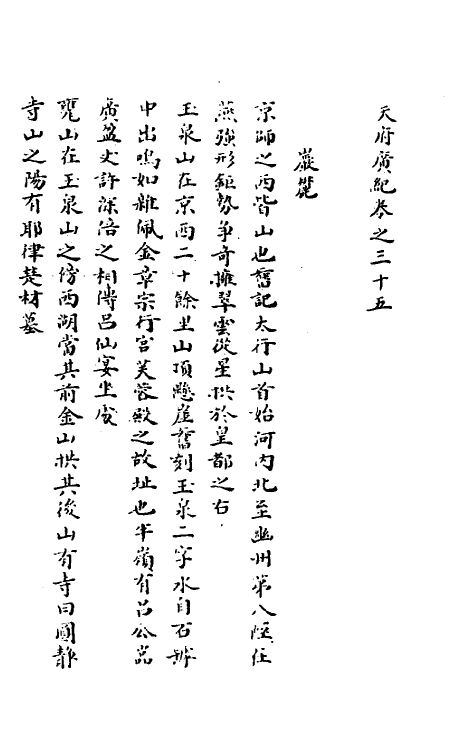 天府廣紀卷之三十五
巖麓
京師之西皆山也舊記太行山首始河内北至幽州第八陘在
燕強形鉅勢爭奇擁翠雲從星拱於皇都之右
玉泉山在京西二十餘里山頂懸崖舊刻玉泉二字水自石罅
中出鳴如雜佩金章宗行宮芙蓉殿之故址也半嶺有呂公岩
廣盈丈許深倍之相傳呂仙宴坐處
甕山在玉泉山之傍西湖當其前金山拱其後山有寺曰圓靜
寺山之陽有耶律楚材墓